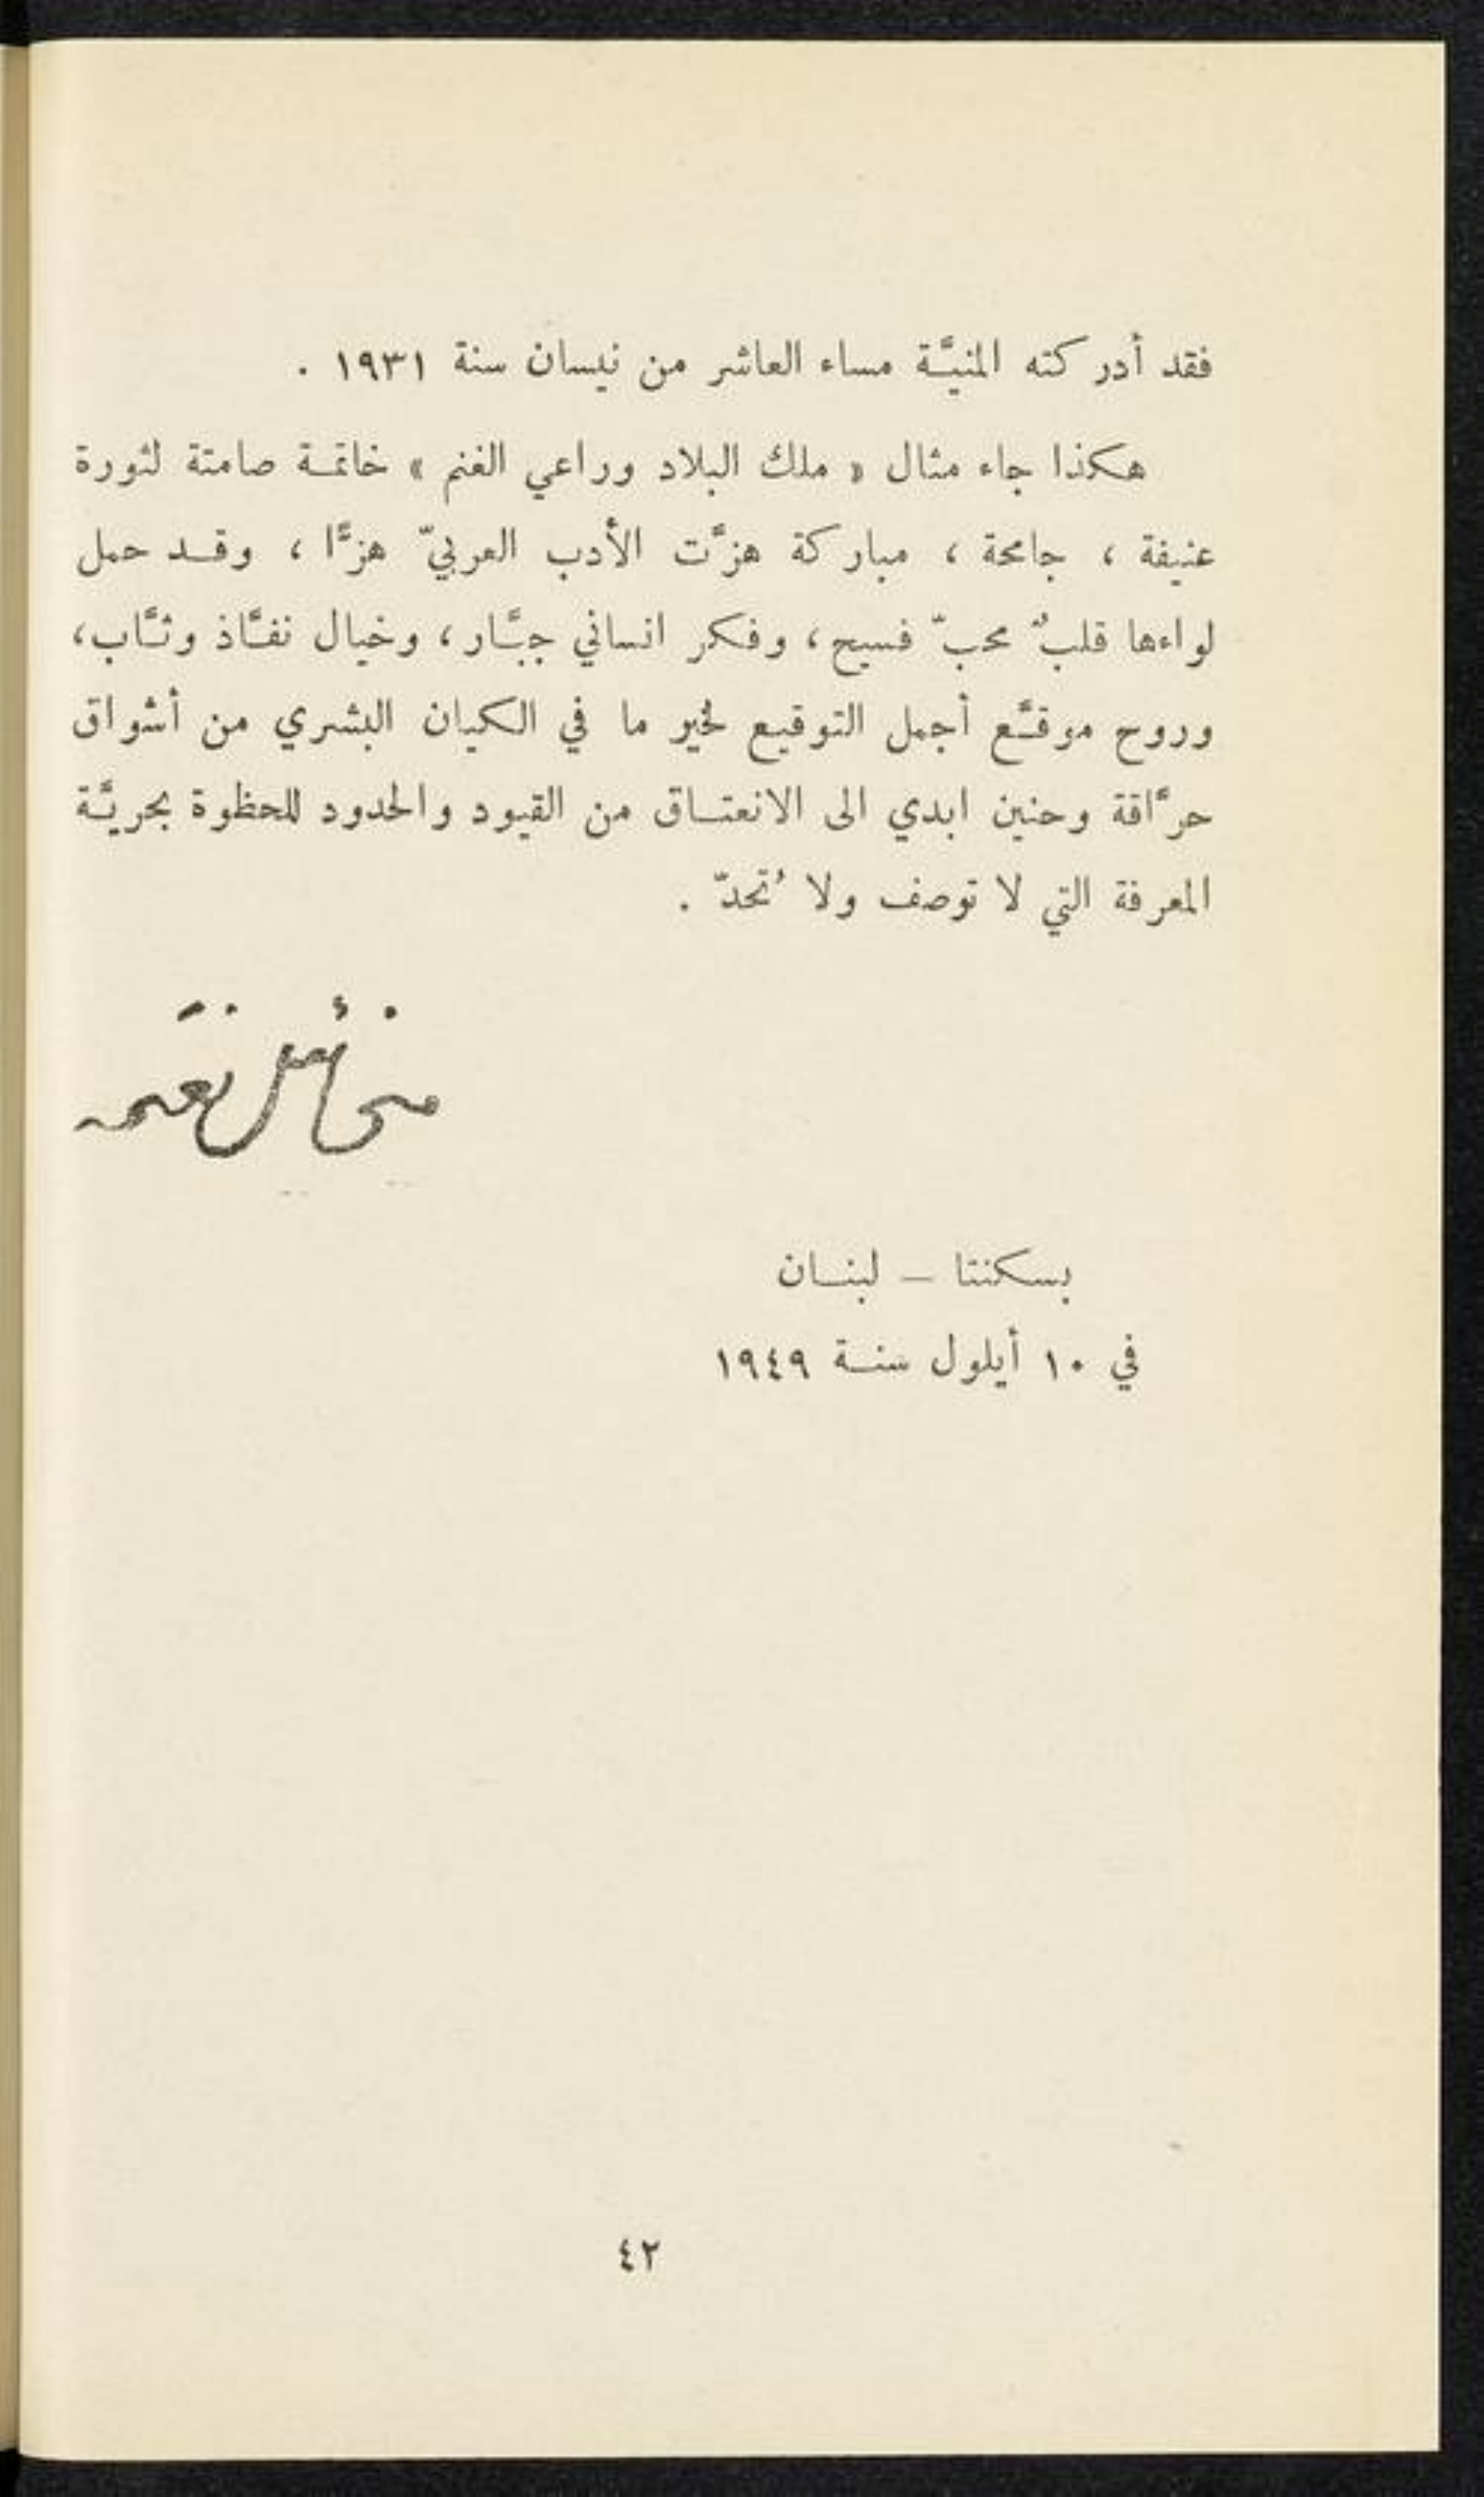 فقد أدركته المنيَّة مساء العاشر من نيسان سنة ١٩٣١ .
هكذا جاء مثال « ملك البلاد وراعي الغنم » خاتمة صامتة لثورة
عنيفة ، جامحة ، مباركة هزَّت الأدب العربيّ هزًّا ، وقد حمل
لواءها قلبٌ محبّ فسيح، وفكر انساني جبَّار، وخيال نفَّاذ وثَّاب،
وروح موقَّع أجمل التوقيع لخير ما في الكيان البشري من أشواق
حرَّاقة وحنين ابدي الى الانعتاق من القيود والحدود للحظوة بحريَّة
المعرفة التي لا توصف ولا تُحدّ .
ميخائيل نعيمه
بسكنتا – لبنان
في ١٠ أيلول سنة ١٩٤٩
٤٢